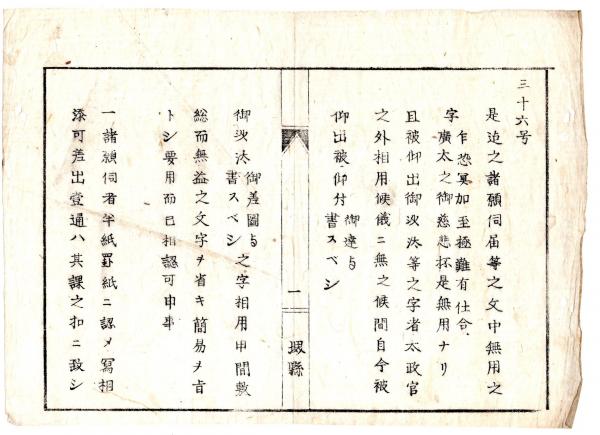 三十六号
是迄之諸願伺届等之文中無用之
字廣太之御慈悲抔是無用ナリ
乍恐冥加至極難有仕合
且被仰出御沙汰等之字者太政官
之外相用候儀ニ無之候間自今被
仰出被仰付
御達与
書スベシ
一
堺縣
御沙汰
御差圖与
書スベシ
之字相用申間敷
総而無益之文字ヲ省キ簡易ヲ旨
トシ要用而已相認可申事
一諸願伺者半紙罫紙ニ認メ寫相
添可差出壹通ハ其課之扣ニ致シ